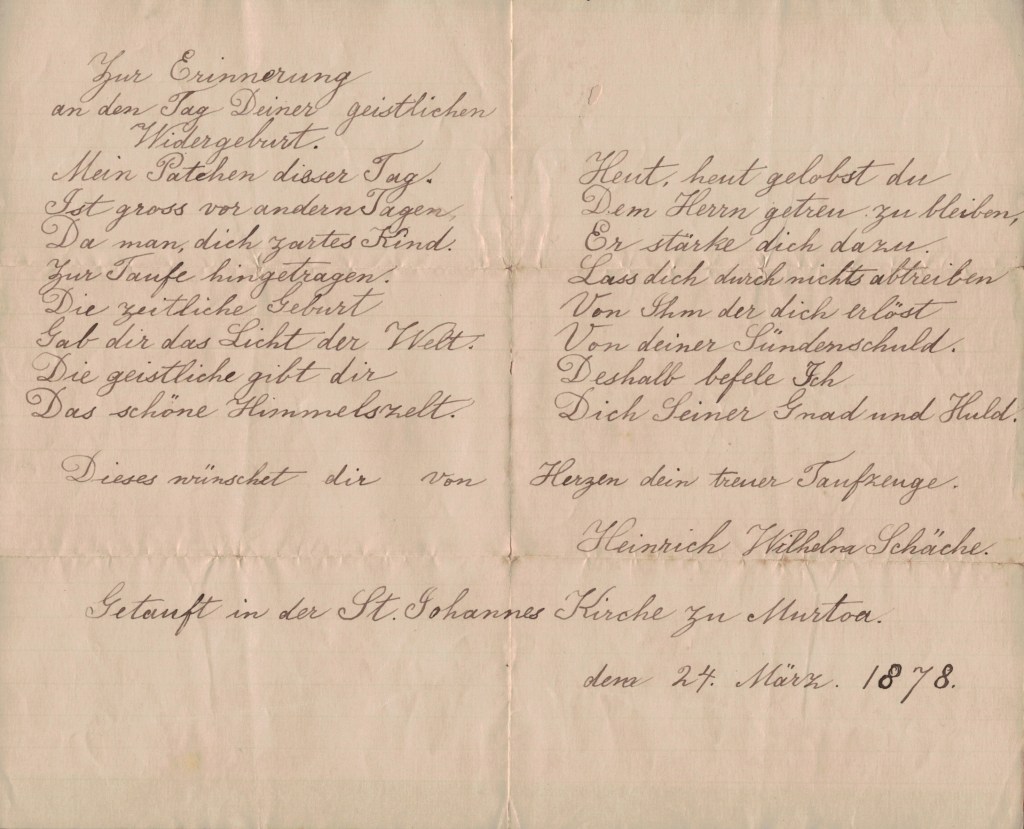 Zur Erinnerung
an den Tag Deiner geistlichen
Widergeburt.
Mein Patchen dieser Tag.
Ist gross vor andern Tagen,
Da man, dich zartes Kind.
Zur Taufe hingetragen.
Die zeitliche Geburt
Gab dir das Licht der Welt.
Die geistliche gibt dir
Das schöne Himmelszelt.
Heut, heut gelobst du
Dem Herrn getreu zu bleiben,
Er stärke dich dazu.
Lass dich durch nichts abtreiben
Von Ihm der dich erlöst
Von deiner Sündenschuld.
Deshalb befele Ich
Dich Seiner Gnad und Huld.
Dieses wünschet dir von Herzen dein treuer Taufzeuge.
Heinrich Wilhelm Schäche.
Getauft in der St. Johannes Kirche zu Murtoa.
dem 24. März. 1878.